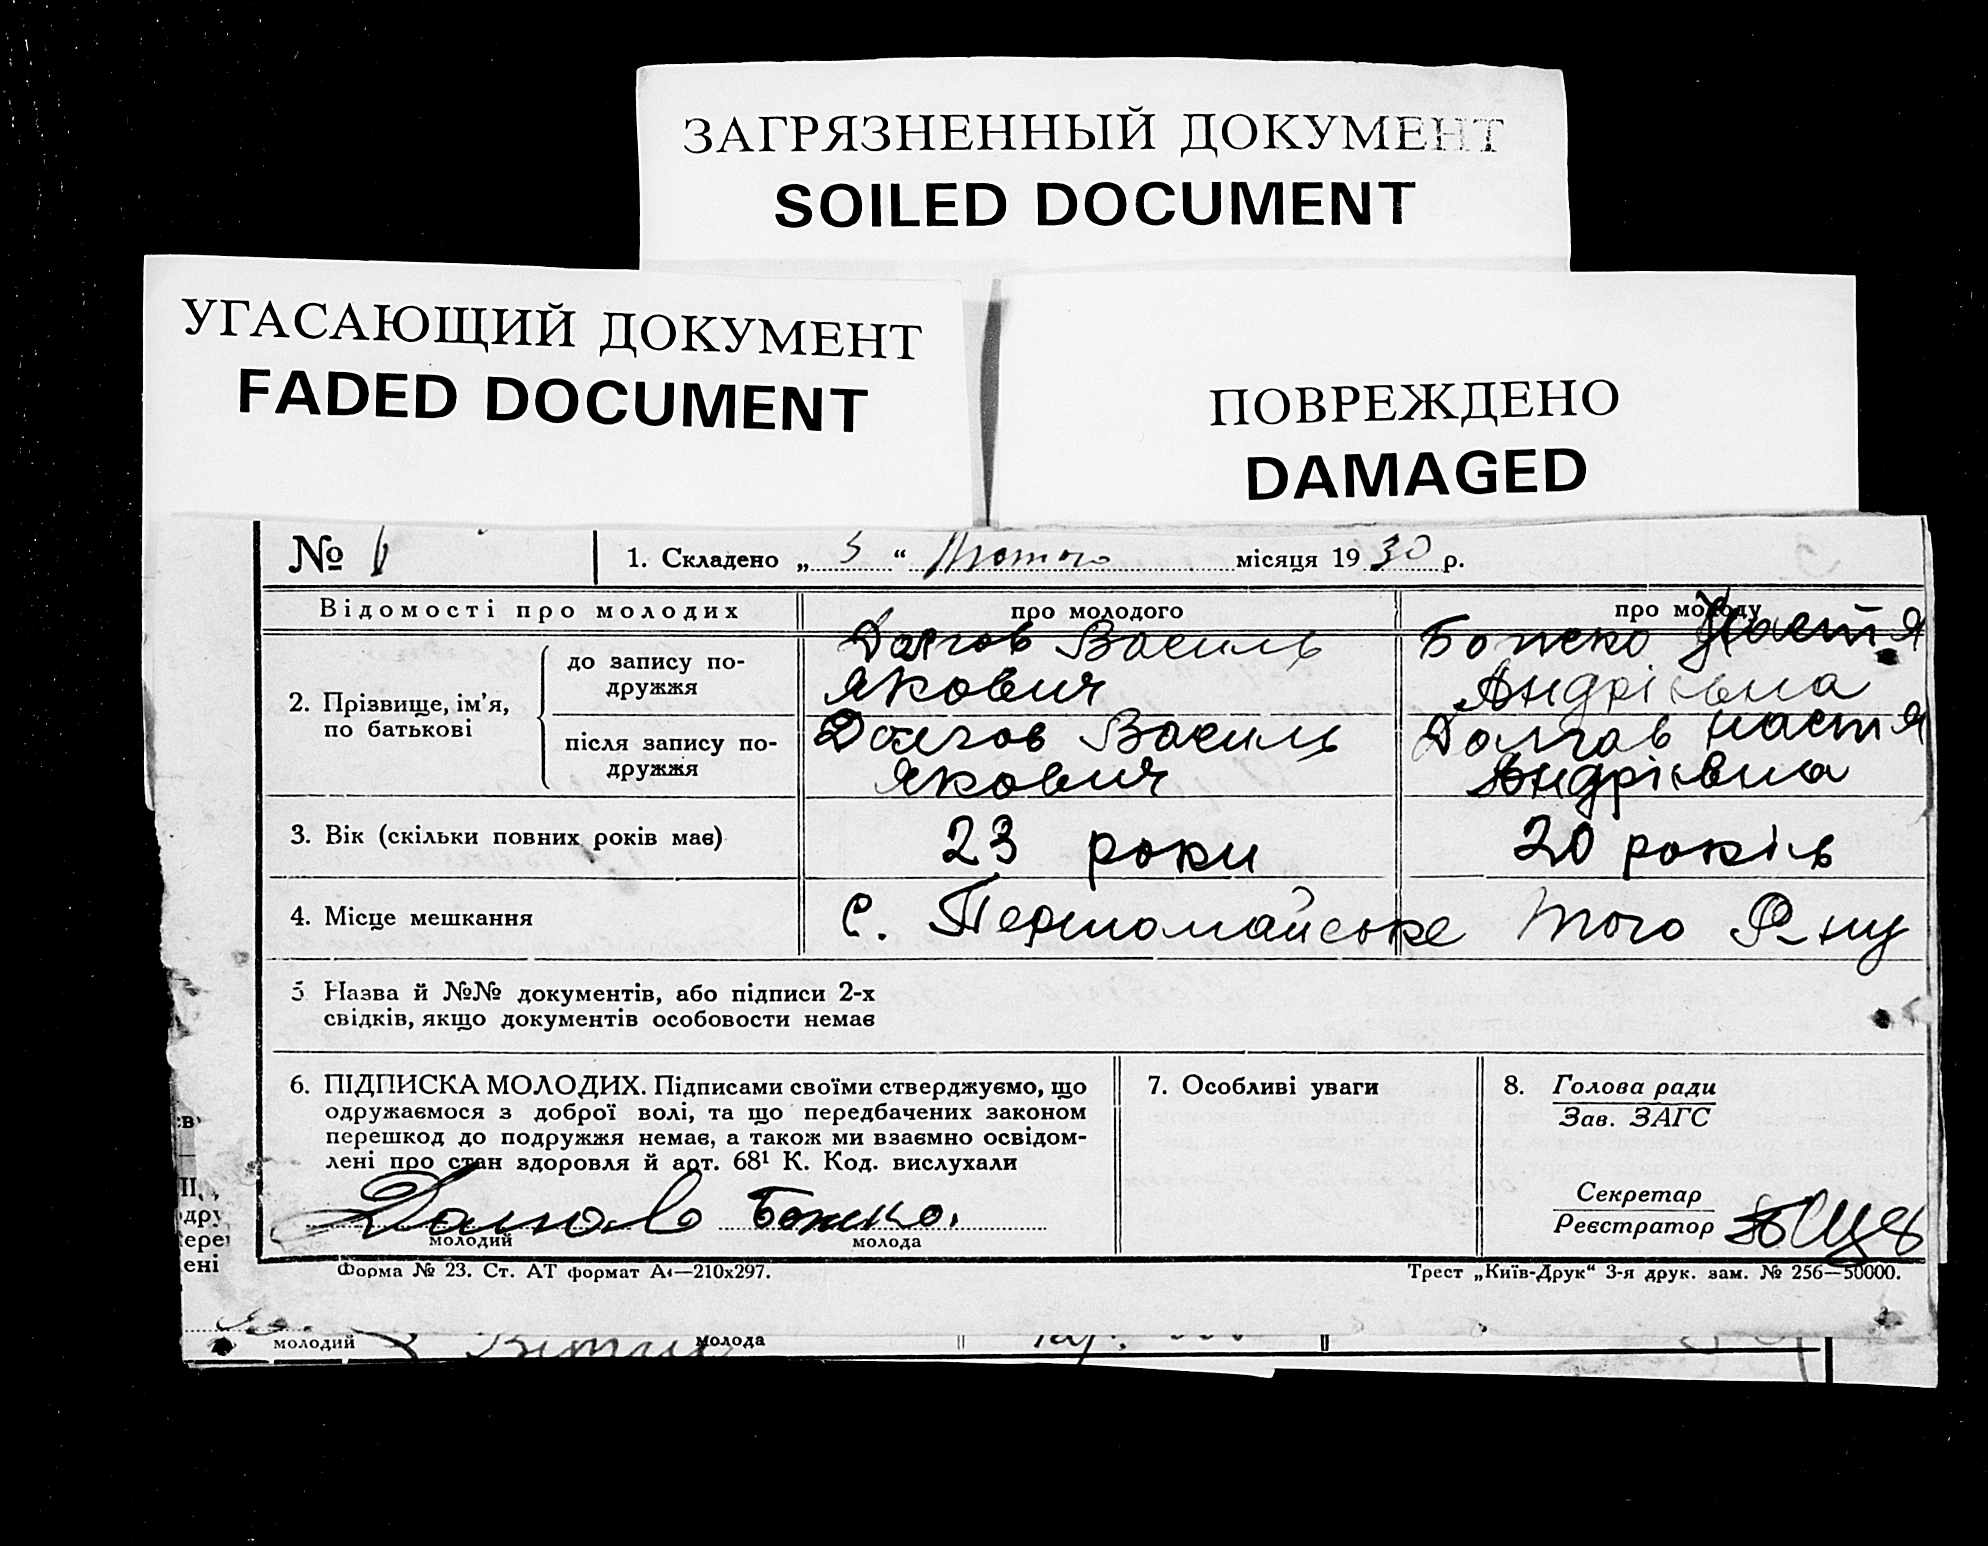 ЗАГРЯЗНЕННЫЙ ДОКУМЕНТ
SOILED DOCUMENT
УГАСАЮЩИЙ ДОКУМЕНТ
FADED DOCUMENT
ПОВРЕЖДЕНО
DAMAGED
№ 6
1. Складено „ 5 “ Лютого місяця 1930 р.
Відомості про молодих
про молодого
про молоду
2. Прізвище, ім'я,
по батькові
до запису по-
дружжя
Долгов Василь
Якович
Божко Настя
Андріівна
після запису по-
дружжя
Долгов Василь
Якович
Долгов Настя
Андріівна
3. Вік (скільки повних років має)
23 роки
20 років
4. Місце мешкання
С. Першомайське того Р-ну
5 Назва й №№ документів, або підписи 2-х
свідків, якщо документів особовости немає
6. ПІДПИСКА МОЛОДИХ. Підписами своїми стверджуємо, що
одружаємося з доброї волі, та що передбачених законом
перешкод до подружжя немає, а також ми взаємно освідом-
лені про стан здоровля й арт. 68¹ К. Код. вислухали
Долгов Божко.
молодий
молода
7. Особливі уваги
8. Голова ради
Зав. ЗАГС
Секретар
Реєстратор
Форма № 23. Ст. АТ формат А4—210х297.
Трест „Київ-Друк“ 3-я друк. зам. № 256—50000.
молодий
молода